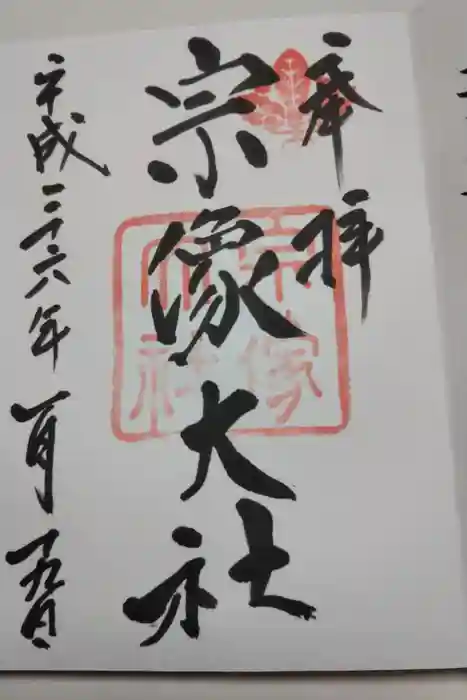 奉拝
宗像大社
宗像大社
平成二十六年一月十九日